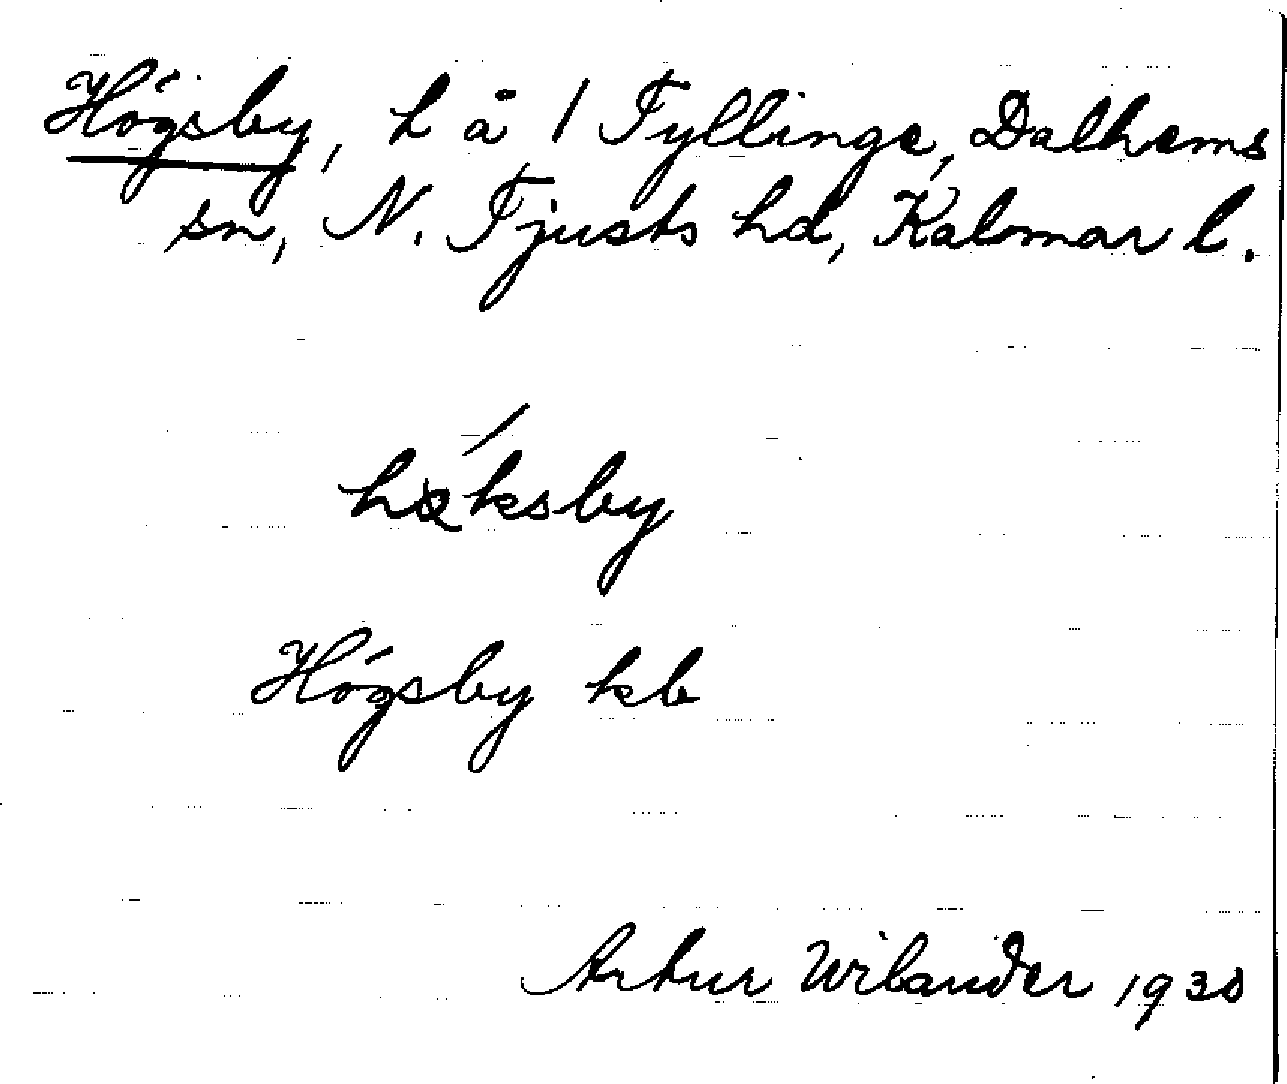 Högsby, h å 1 Fyllinge, Dalhems
sn, N. Tjusts hd, Kalmar l.
Högsby kb
Artur Wilander 1930